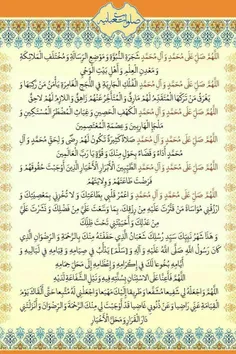 صلوات شعبانیه
اَللّٰهُمَّ صَلِّ عَلَى مُحَمَّدٍ وَآلِ مُحَمَّدٍ شَجَرَةِ النُّبُوَّةِ وَ مَوْضِعِ الرِّسَالَةِ وَ مُخْتَلَفِ الْمَلاَئِكَةِ
وَ مَعْدِنِ الْعِلْمِ وَ أَهْلِ بَيْتِ الْوَحْيِ
اَللّٰهُمَّ صَلِّ عَلَى مُحَمَّدٍ وَآلِ مُحَمَّدٍ الْفُلْكِ الْجَارِيَةِ فِي اللُّجَجِ الْغَامِرَةِ يَأْمَنُ مَنْ رَكِبَهَا وَ
يَغْرَقُ مَنْ تَرَكَهَا الْمُتَقَدِّمُ لَهُمْ مَارِقٌ وَ الْمُتَأَخِّرُ عَنْهُمْ زَاهِقٌ وَ اللاَّزِمُ لَهُمْ لاَحِقٌ
اَللّٰهُمَّ صَلِّ عَلَى مُحَمَّدٍ وَآلِ مُحَمَّدٍ الْكَهْفِ الْحَصِينِ وَ غِيَاثِ الْمُضْطَرِّ الْمُسْتَكِينِ وَ
مَلْجَإِ الْهَارِبِينَ وَ عِصْمَةِ الْمُعْتَصِمِينَ
اَللّٰهُمَّ صَلِّ عَلَى مُحَمَّدٍ وَآلِ مُحَمَّدٍ صَلاَةً كَثِيرَةً تَكُونُ لَهُمْ رِضًى وَ لِحَقِّ مُحَمَّدٍ وَ آلِ
مُحَمَّدٍ أَدَاءً وَ قَضَاءً بِحَوْلٍ مِنْكَ وَ قُوَّةٍ يَا رَبَّ الْعَالَمِينَ
اَللّٰهُمَّ صَلِّ عَلَى مُحَمَّدٍ وَآلِ مُحَمَّدٍ الطَّيِّبِينَ الْأَبْرَارِ الْأَخْيَارِ الَّذِينَ أَوْجَبْتَ حُقُوقَهُمْ وَ
فَرَضْتَ طَاعَتَهُمْ وَ وِلاَيَتَهُمْ
اَللّٰهُمَّ صَلِّ عَلَى مُحَمَّدٍ وَآلِ مُحَمَّدٍ وَ اعْمُرْ قَلْبِي بِطَاعَتِكَ وَ لاَ تُخْزِنِي بِمَعْصِيَتِكَ وَ
ارْزُقْنِي مُوَاسَاةَ مَنْ قَتَّرْتَ عَلَيْهِ مِنْ رِزْقِكَ بِمَا وَسَّعْتَ عَلَيَّ مِنْ فَضْلِكَ وَ نَشَرْتَ عَلَيَّ
مِنْ عَدْلِكَ وَ أَحْيَيْتَنِي تَحْتَ ظِلِّكَ
وَ هَذَا شَهْرُ نَبِيِّكَ سَيِّدِ رُسُلِكَ شَعْبَانُ الَّذِي حَفَفْتَهُ مِنْكَ بِالرَّحْمَةِ وَ الرِّضْوَانِ الَّذِي
كَانَ رَسُولُ اللّٰهِ صَلَّى اللّٰهُ عَلَيْهِ وَ آلِهِ وَ سَلَّمَ يَدْأَبُ فِي صِيَامِهِ وَ قِيَامِهِ فِي لَيَالِيهِ وَ
أَيَّامِهِ بُخُوعاً لَكَ فِي إِكْرَامِهِ وَ إِعْظَامِهِ إِلَى مَحَلِّ حِمَامِهِ
اَللّٰهُمَّ فَأَعِنَّا عَلَى الاِسْتِنَانِ بِسُنَّتِهِ فِيهِ وَ نَيْلِ الشَّفَاعَةِ لَدَيْهِ
اَللّٰهُمَّ وَ اجْعَلْهُ لِي شَفِيعاً مُشَفَّعاً وَ طَرِيقاً إِلَيْكَ مَهْيَعاً وَ اجْعَلْنِي لَهُ مُتَّبِعاً حَتَّى أَلْقَاكَ يَوْمَ
الْقِيَامَةِ عَنِّي رَاضِياً وَ عَنْ ذُنُوبِي غَاضِياً قَدْ أَوْجَبْتَ لِي مِنْكَ الرَّحْمَةَ وَ الرِّضْوَانَ وَ أَنْزَلْتَنِي
دَارَ الْقَرَارِ وَ مَحَلَّ الْأَخْيَارِ